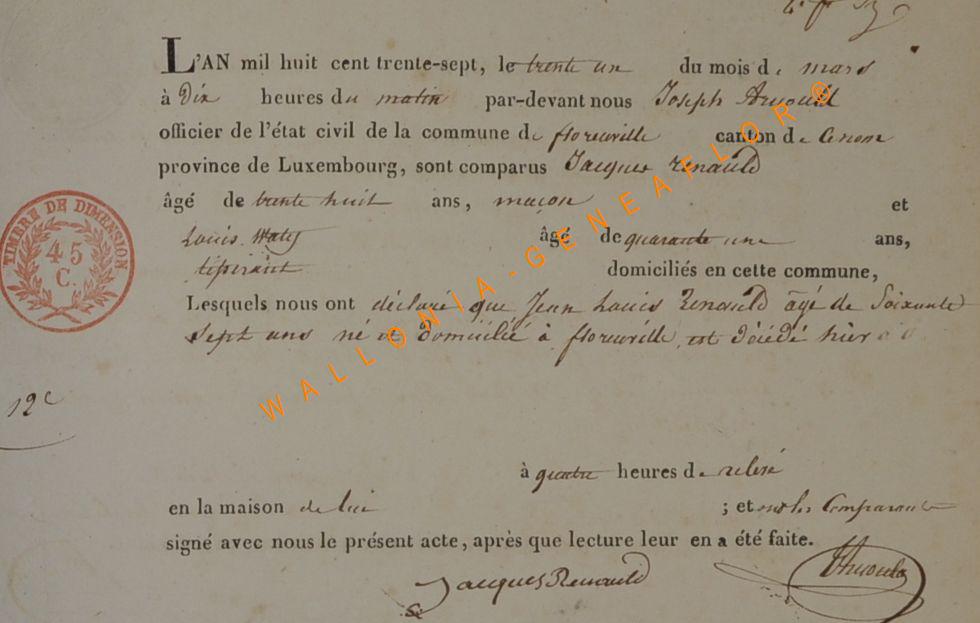 L'AN mil huit cent trente-sept, le trente un du mois de mars
à Dix heures du matin par-devant nous Joseph Arnould
officier de l'état civil de la commune de florenville canton de
province de Luxembourg, sont comparus Jacques Renauld
âgé de trente huit ans, maçon et
Louis Watiy âgé de quarante une ans,
domiciliés en cette commune,
Lesquels nous ont déclaré que Jean Louis Renauld âgé de Soixante
Sept ans né et domicilié à florenville, est décédé hier
à quatre heures de relevé
en la maison de lui ; et les Comparants
signé avec nous le présent acte, après que lecture leur en a été faite.
Jacques Renauld
Arnould
TIMBRE DE DIMENSION
45
C.
12e
WALLONIA-GENEAFLOR®